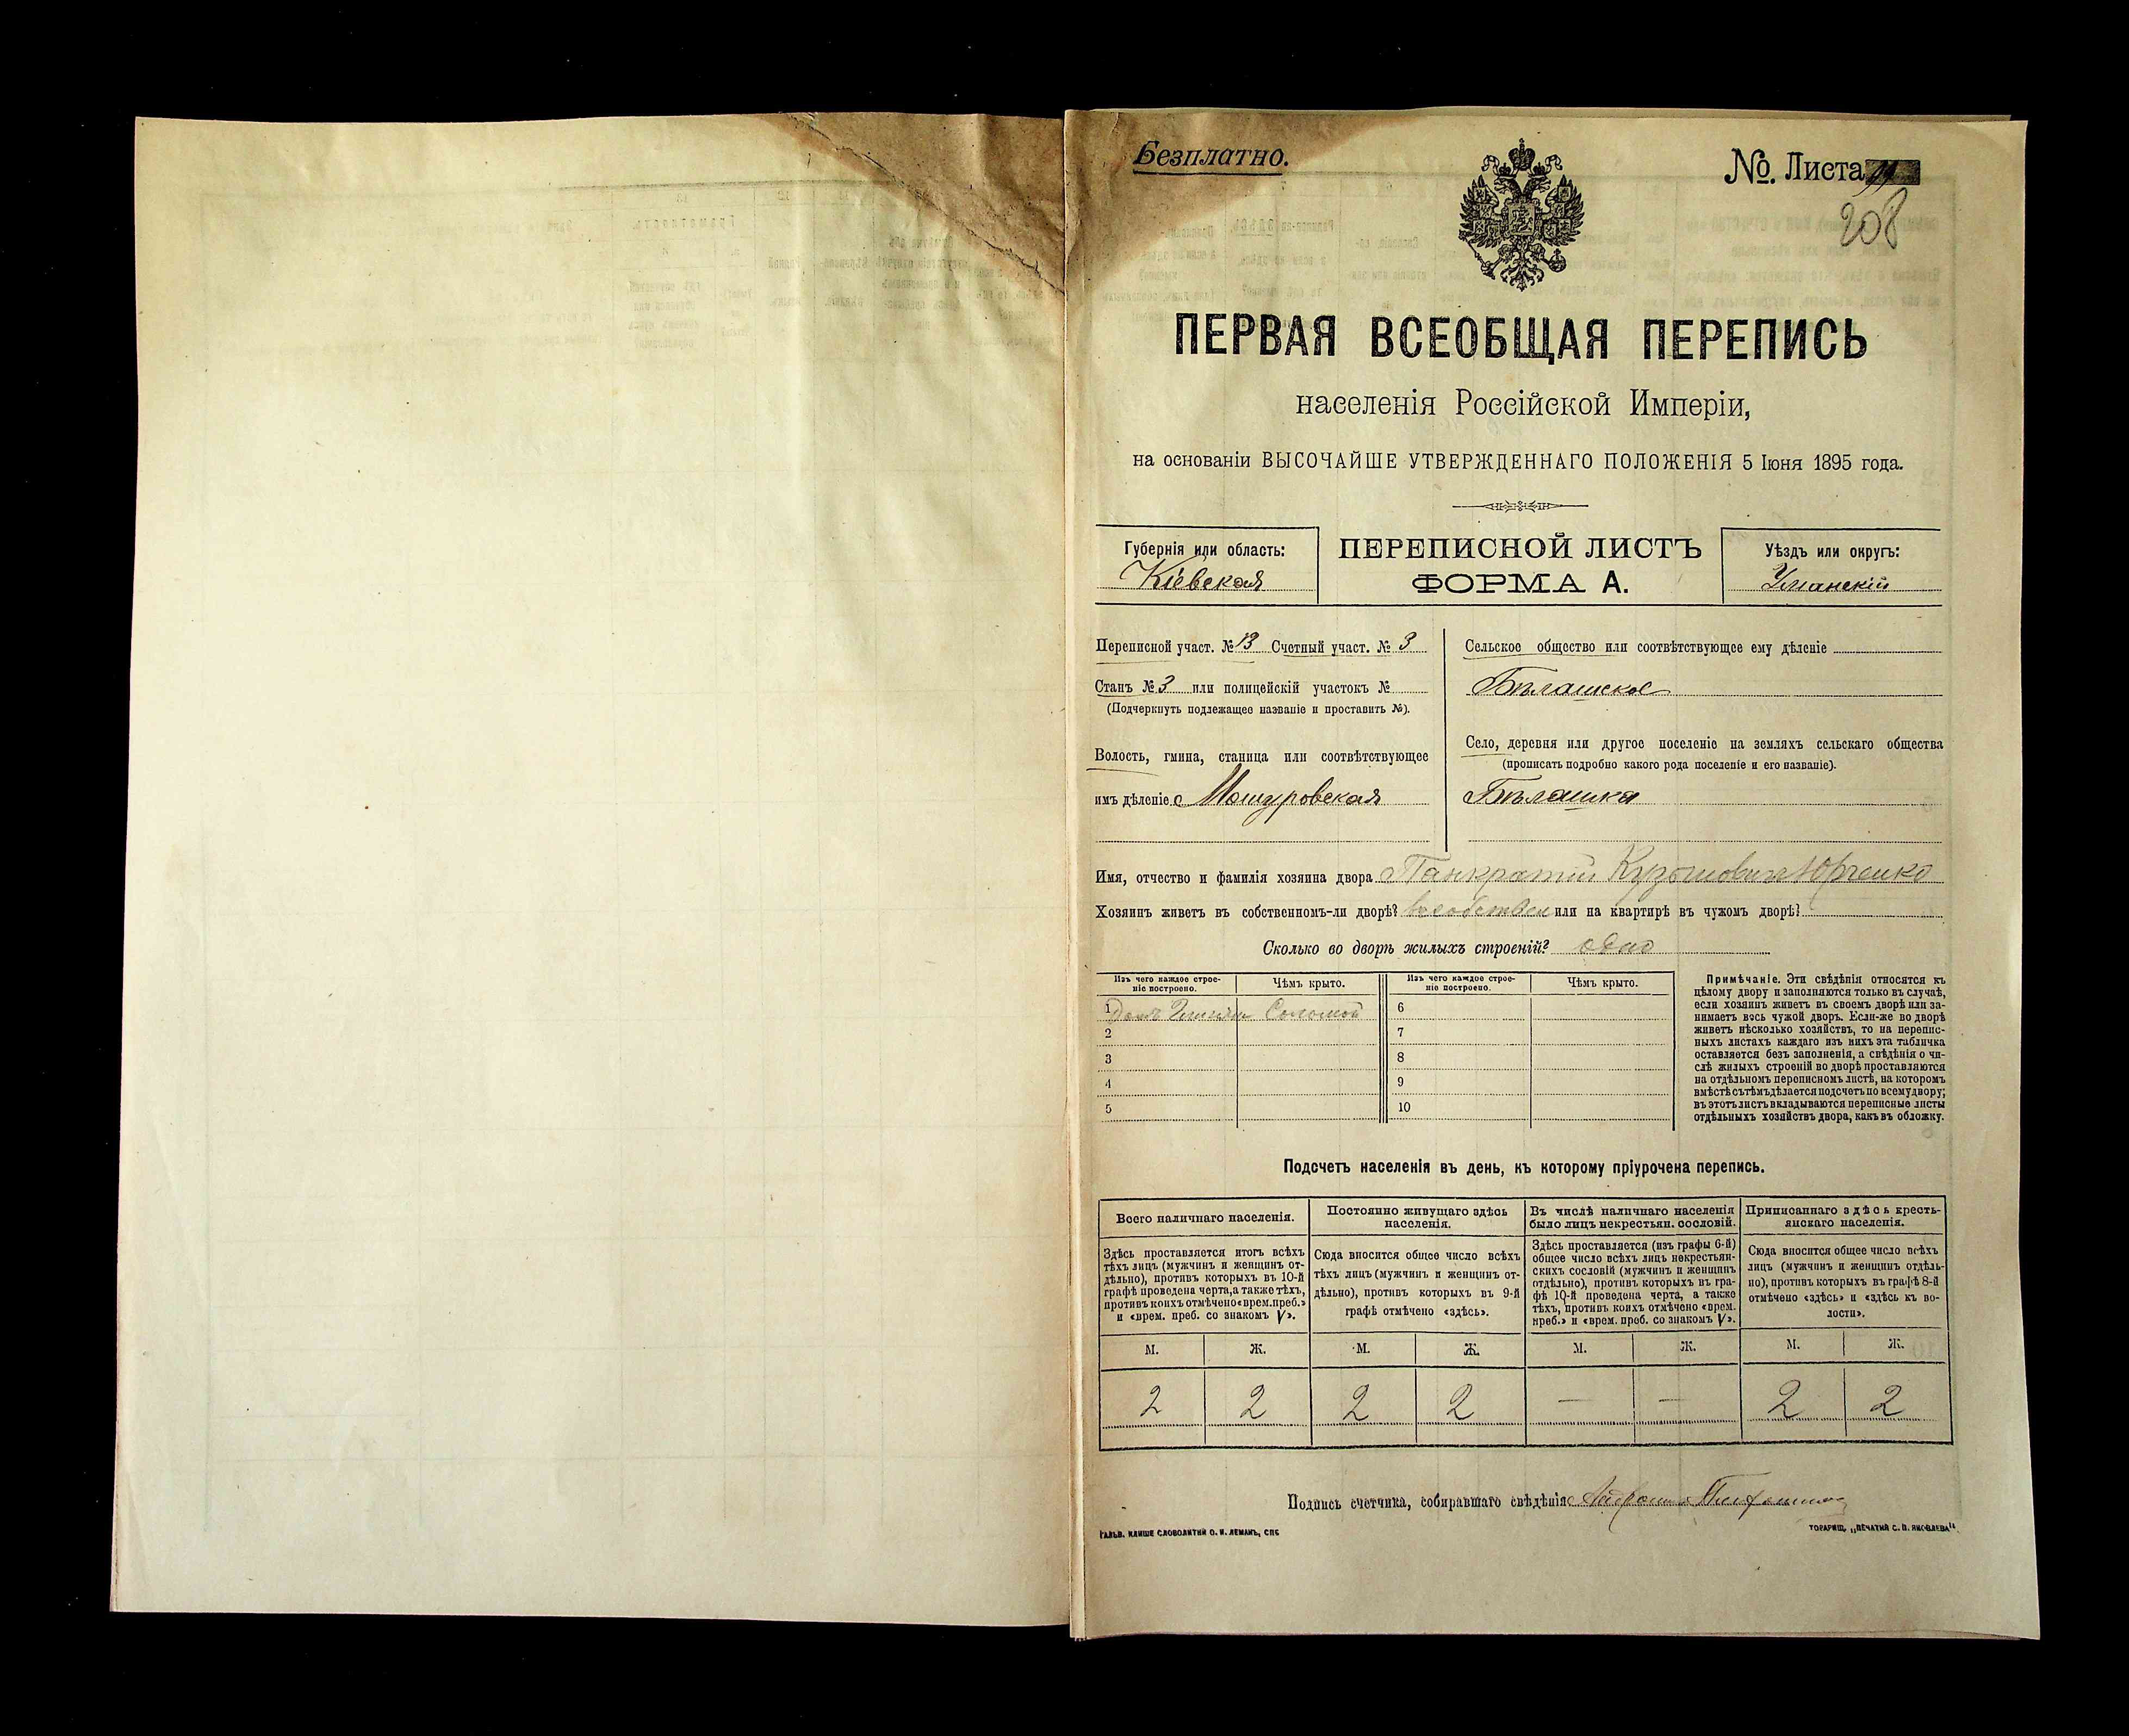 Безплатно.
№ Листа
208
ПЕРВАЯ ВСЕОБЩАЯ ПЕРЕПИСЬ
населенія Россійской Имперіи,
на основаніи ВЫСОЧАЙШЕ УТВЕРЖДЕННАГО ПОЛОЖЕНІЯ 5 Іюня 1895 года.
Губернія или область:
Кіевская
ПЕРЕПИСНОЙ ЛИСТЪ
ФОРМА А.
Уѣздъ или округъ:
Уманскій
Переписной участ. № 13 Счетный участ. № 3
Станъ № 3 или полицейскій участокъ №
(Подчеркнуть подлежащее названіе и проставить №).
Волость, гмина, станица или соотвѣтствующее
имъ дѣленіе Машуровская
Сельское общество или соотвѣтствующее ему дѣленіе
Бѣлашское
Село, деревня или другое поселеніе на земляхъ сельскаго общества
(прописать подробно какого рода поселеніе и его названіе).
Бѣлашка
Имя, отчество и фамилія хозяина двора Панкратій Кузьмовичъ Юрченко
Хозяинъ живетъ въ собственномъ-ли дворѣ? въ собствен или на квартирѣ въ чужомъ дворѣ?
Сколько во дворѣ жилыхъ строеній? одно
Изъ чего каждое строе-
ніе построено.
Чѣмъ крыто.
Изъ чего каждое строе-
ніе построено.
Чѣмъ крыто.
1 домъ Соломой
2
3
4
5
6
7
8
9
10
Примѣчаніе. Эти свѣдѣнія относятся къ
цѣлому двору и заполняются только въ случаѣ,
если хозяинъ живетъ въ своемъ дворѣ или за-
нимаетъ весь чужой дворъ. Если-же во дворѣ
живетъ нѣсколько хозяйствъ, то на перепис-
ныхъ листахъ каждаго изъ нихъ эта табличка
оставляется безъ заполненія, а свѣдѣнія о чи-
слѣ жилыхъ строеній во дворѣ проставляются
на отдѣльномъ переписномъ листѣ, на которомъ
вмѣстѣ съ тѣмъ дѣлается подсчетъ по всему двору;
въ этотъ листъ вкладываются переписные листы
отдѣльныхъ хозяйствъ двора, какъ въ обложку.
Подсчетъ населенія въ день, къ которому пріурочена перепись.
Всего наличнаго населенія.
Постоянно живущаго здѣсь
населенія.
Въ числѣ наличнаго населенія
было лицъ некрестьян. сословій.
Приписаннаго здѣсь кресть-
янскаго населенія.
Здѣсь проставляется итогъ всѣхъ
тѣхъ лицъ (мужчинъ и женщинъ от-
дѣльно), противъ которыхъ въ 10-й
графѣ проведена черта, а также тѣхъ,
противъ коихъ отмѣчено «врем. преб.»
и «врем. преб. со знакомъ V».
Сюда вносится общее число всѣхъ
тѣхъ лицъ (мужчинъ и женщинъ от-
дѣльно), противъ которыхъ въ 9-й
графѣ отмѣчено «здѣсь».
Здѣсь проставляется (изъ графы 6-й)
общее число всѣхъ лицъ некрестьян-
скихъ сословій (мужчинъ и женщинъ
отдѣльно), противъ которыхъ въ гра-
фѣ 10-й проведена черта, а также
тѣхъ, противъ коихъ отмѣчено «врем.
преб.» и «врем. преб. со знакомъ V».
Сюда вносится общее число всѣхъ
лицъ (мужчинъ и женщинъ отдѣль-
но), противъ которыхъ въ графѣ 8-й
отмѣчено «здѣсь» и «здѣсь къ во-
лости».
М. Ж. М. Ж. М. Ж. М. Ж.
2 2 2 2 — — 2 2
Подпись счетчика, собиравшаго свѣдѣнія
ГАЛЬВ. КЛИШЕ СЛОВОЛИТНИ О. И. ЛЕМАНЪ, СПБ
ТОВАРИЩ. „ПЕЧАТНЯ С. П. ЯКОВЛЕВА"